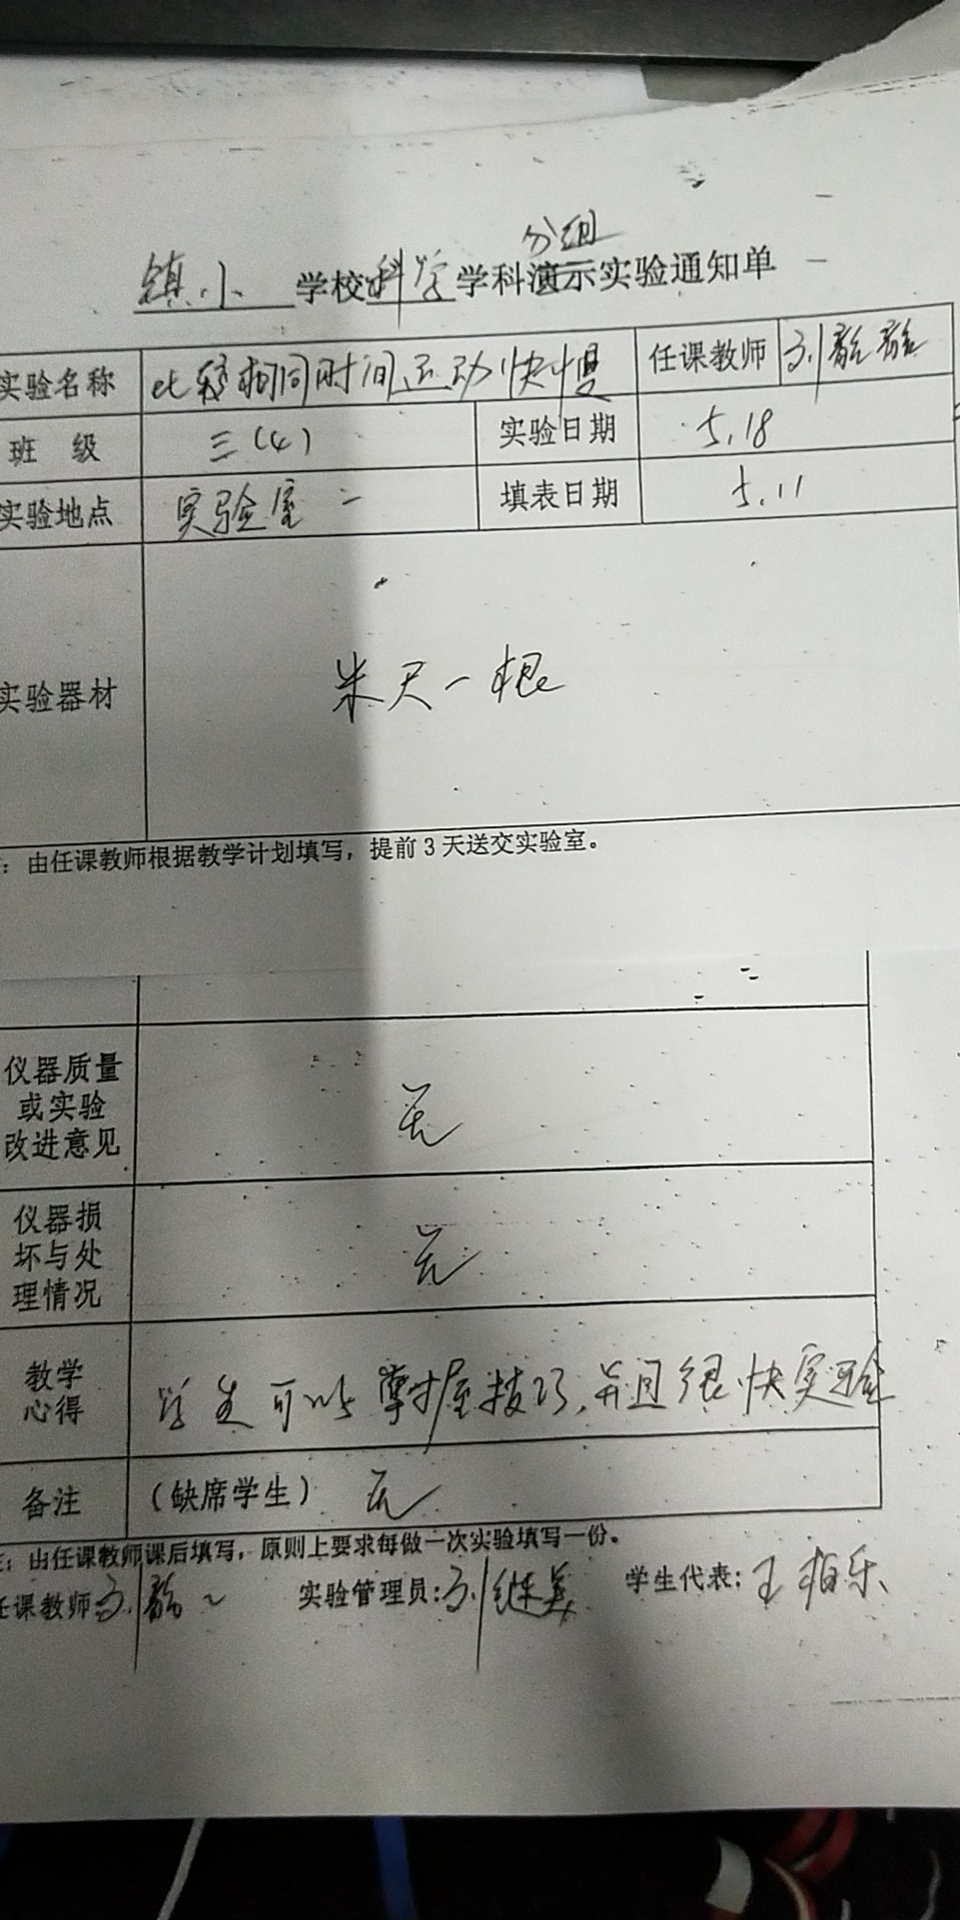 分组
镇小 学校 科学 学科演示实验通知单
实验名称 比较相同时间运动快慢 任课教师 刘
班 级 三(4) 实验日期 5.18
实验地点 实验室二 填表日期 5.11
实验器材 米尺一根
：由任课教师根据教学计划填写，提前3天送交实验室。
仪器质量
或实验
改进意见 无
仪器损
坏与处
理情况 无
教学
心得 学生可以掌握技巧,并且很快实验
备注 (缺席学生) 无
注：由任课教师课后填写，原则上要求每做一次实验填写一份。
任课教师 刘 实验管理员:刘继美 学生代表:王柏乐